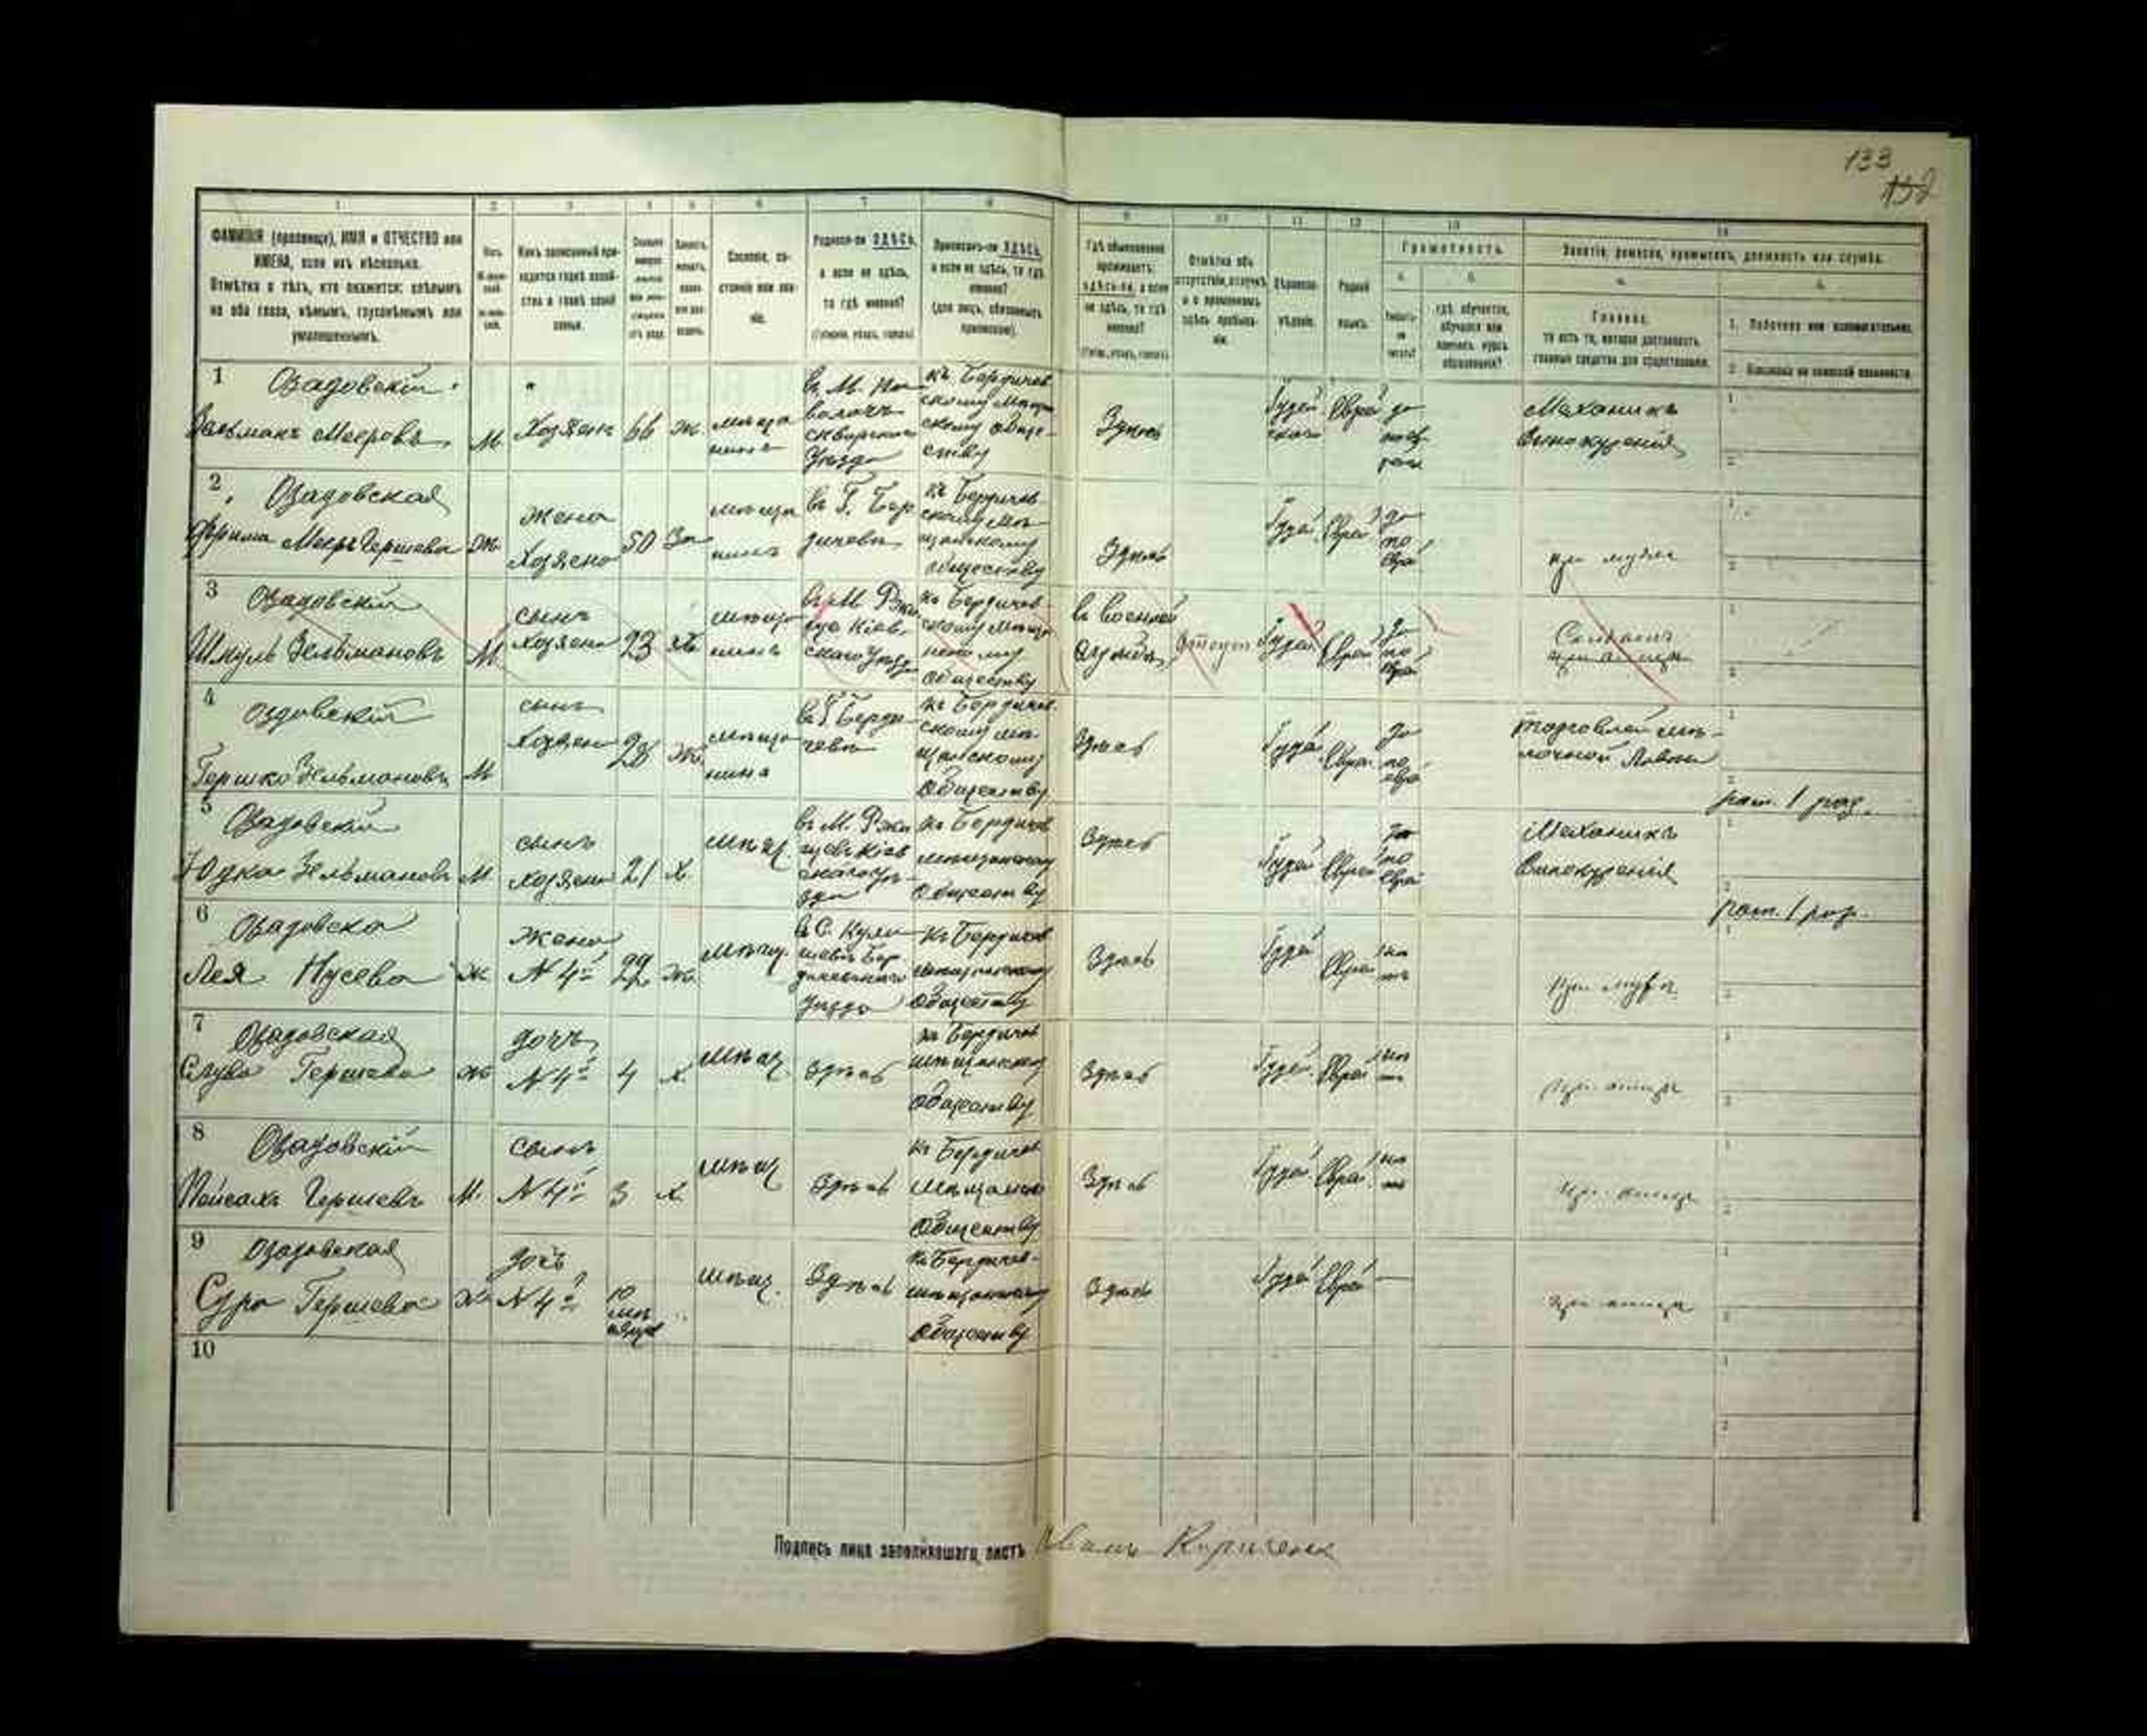 133
132
1
2
3
4
5
6
7
8
9
10
11
12
13
14
ФАМИЛІЯ (прозвище), ИМЯ и ОТЧЕСТВО или
ИМЕНА, если ихъ нѣсколько.
Отмѣтка о тѣхъ, кто окажется: слѣпымъ
на оба глаза, нѣмымъ, глухонѣмымъ или
умалишеннымъ.
Полъ.
Какъ записанный при-
ходится главѣ хозяй-
ства и главѣ своей
семьи.
Сословіе, со-
стояніе или зва-
ніе.
Родился-ли ЗДѢСЬ,
а если не здѣсь,
то гдѣ именно?
(Губернія, уѣздъ, городъ)
Приписанъ-ли ЗДѢСЬ,
а если не здѣсь, то гдѣ
именно?
(для лицъ, обязанныхъ
припискою).
Гдѣ обыкновенно
проживаетъ:
здѣсь-ли, а если
не здѣсь, то гдѣ
именно?
(Губ., уѣздъ, городъ)
Отмѣтка объ
отсутствіи, отлучкѣ
и о временномъ
здѣсь пребыва-
ніи.
Вѣроиспо-
вѣданіе.
Родной
языкъ.
Грамотность.
а.
б.
Умѣетъ-
ли
читать?
гдѣ обучается,
обучался или
кончилъ курсъ
образованія?
Занятіе, ремесло, промыселъ, должность или служба.
а.
б.
Главное,
то есть то, которое доставляетъ
главныя средства для существованія.
1. Побочное или вспомогательное.
2. Положеніе по воинской повинности.
1 Озадовскій
Зельманъ Мееровъ
М
Хозяинъ
66
ж.
мѣща
нинъ
въ М. Па
волочъ
сквирскаго
Уѣзда
къ Бердичев
скому мѣщан
скому обще-
ству
Здѣсь
Іудей
ское
Еврей
да
по евр
Механикъ
Винокуренія
2 Озадовская
Фрима Меер Гершева
Ж
жена
Хозяина
50
За
въ Г. Бер
дичевѣ
къ Бердичев
скому мѣ
щанскому
обществу
Здѣсь
Іудей
Еврей
да
по
Еврей
при мужѣ
3 Озадовскій
Шмуль Зельмановъ
М
сынъ
Хозяина
23
въ М. Ржи
щевѣ Кіев
скаго Уѣзда
къ Бердичев
скому мѣщан
скому
Обществу
в военной
службѣ
Іудей
Еврей
да
по
Евр
при отцѣ
4 Оздовскій
Гершко Зельмановъ
М
сынъ
Хозяина
28
ж.
мѣща
нинъ
въ Г Берди
чевѣ
къ Бердичев
скому мѣ
щанскому
Обществу
Здѣсь
Іудей
Еврей
да
по
евр
торговлей мѣ-
лочной Лавки
рат. 1 раз.
5 Озадовскій
Юдко Зельмановъ
М
сынъ
хозяина
21
х.
мѣщ.
въ М. Ржи
щевѣ Кіев
скаго Уѣ-
зда
къ Бердичев
мѣщанскому
Обществу
Здѣсь
Іудей
Еврей
да
по
Еврей
Механикъ
Винокуренія
рат. 1 раз.
6 Озадовска
Лея Нусева
ж
Жена
№ 4й
22
ж.
мѣщ.
въ С. Кули
шевѣ Бер
дичевскаго
Уѣзда
къ Бердичев
мѣщанскому
Обществу
Здѣсь
Іудей
Еврей
нѣ
тъ
при мужѣ
7 Озадовская
Слува Гершева
ж
дочь
№ 4й
4
х.
мѣщ.
Здѣсь
къ Бердичев
мѣщанскому
обществу
Здѣсь
Іудей
Еврей
нѣ
тъ
при отцѣ
8 Озадовскій
Пейсахъ Гершевъ
М.
сынъ
№ 4й
3
х.
мѣщ
Здѣсь
къ Бердичев
мѣщанско
Обществу
Здѣсь
Іудей
Еврей
нѣ
тъ
при отцѣ
9 Озадовская
Сура Гершева
Ж
дочь
№ 4й
10
мѣ
сяцев
мѣщ.
Здѣсь
къ Бердичев-
мѣщанскому
Обществу
Здѣсь
Іудей
Еврей
при отцѣ
10
Подпись лица заполнявшаго листъ Иванъ Кириченк